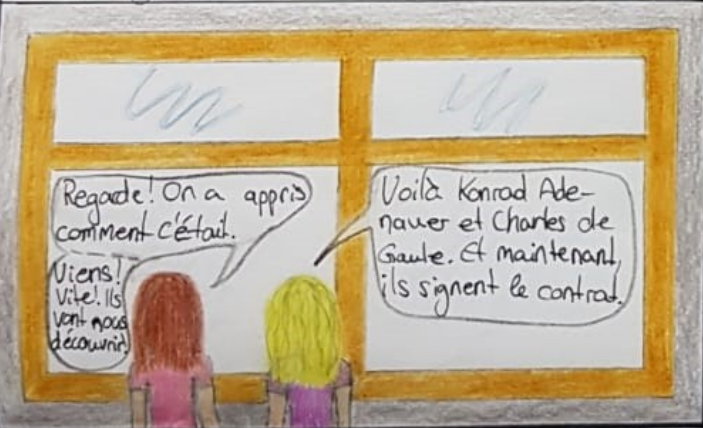 Regarde! On a appris
comment c'était.
Viens!
Vite! Ils
vont nous
découvrir!
Voilà Konrad Ade-
nauer et Charles de
Gaule. Et maintenant,
ils signent le contrat.